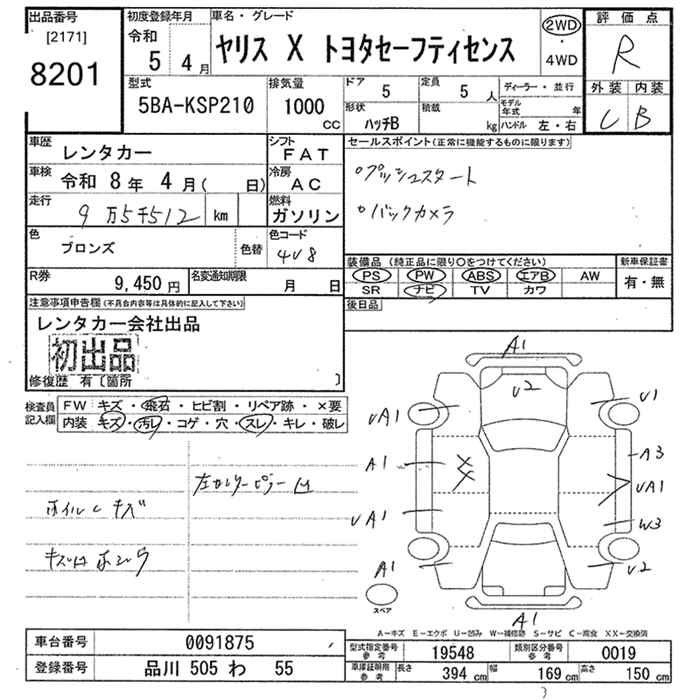 出品番号
[2171]
8201
初度登録年月
令和
5 4月
車名・グレード
ヤリス X トヨタセーフティセンス
2WD
・
4WD
評価点
R
外装 内装
C B
型式
5BA-KSP210
排気量
1000
CC
ドア
5
定員
5 人
形状
ハッチB
積載
kg
ディーラー・並行
モデル年式 年
ハンドル 左・右
車歴
レンタカー
シフト
FAT
車検
令和 8年 4月( 日)
冷房
AC
走行
9万5千512 km
燃料
ガソリン
色
ブロンズ
色替
色コード
4V8
R券
9,450円
名変通知期限
月 日
セールスポイント(正常に機能するものに限ります)
○プッシュスタート
○バックカメラ
装備品(純正品に限り○をつけてください)
PS PW ABS エアB AW
SR ナビ TV カワ
新車保証書
有・無
後日品
注意事項申告欄(不具合内容等は具体的に記入して下さい)
レンタカー会社出品
初出品
修復歴 有〔箇所 〕
検査員記入欄
FW キズ・飛石・ヒビ割・リペア跡・×要
内装 キズ・汚レ・コゲ・穴・スレ・キレ・破レ
ホイルCキズ
A1
U2
UA1
U1
A1
XX
A3
UA1
UA1
W3
A1
U2
A1
スペア
A-キズ E-エクボ U-凹み W-補修跡 S-サビ C-腐食 XX-交換済
車台番号
0091875
登録番号
品川 505 わ 55
型式指定番号
参考
19548
類別区分番号
参考
0019
車庫証明用
参考
長さ
394 cm
幅
169 cm
高さ
150 cm